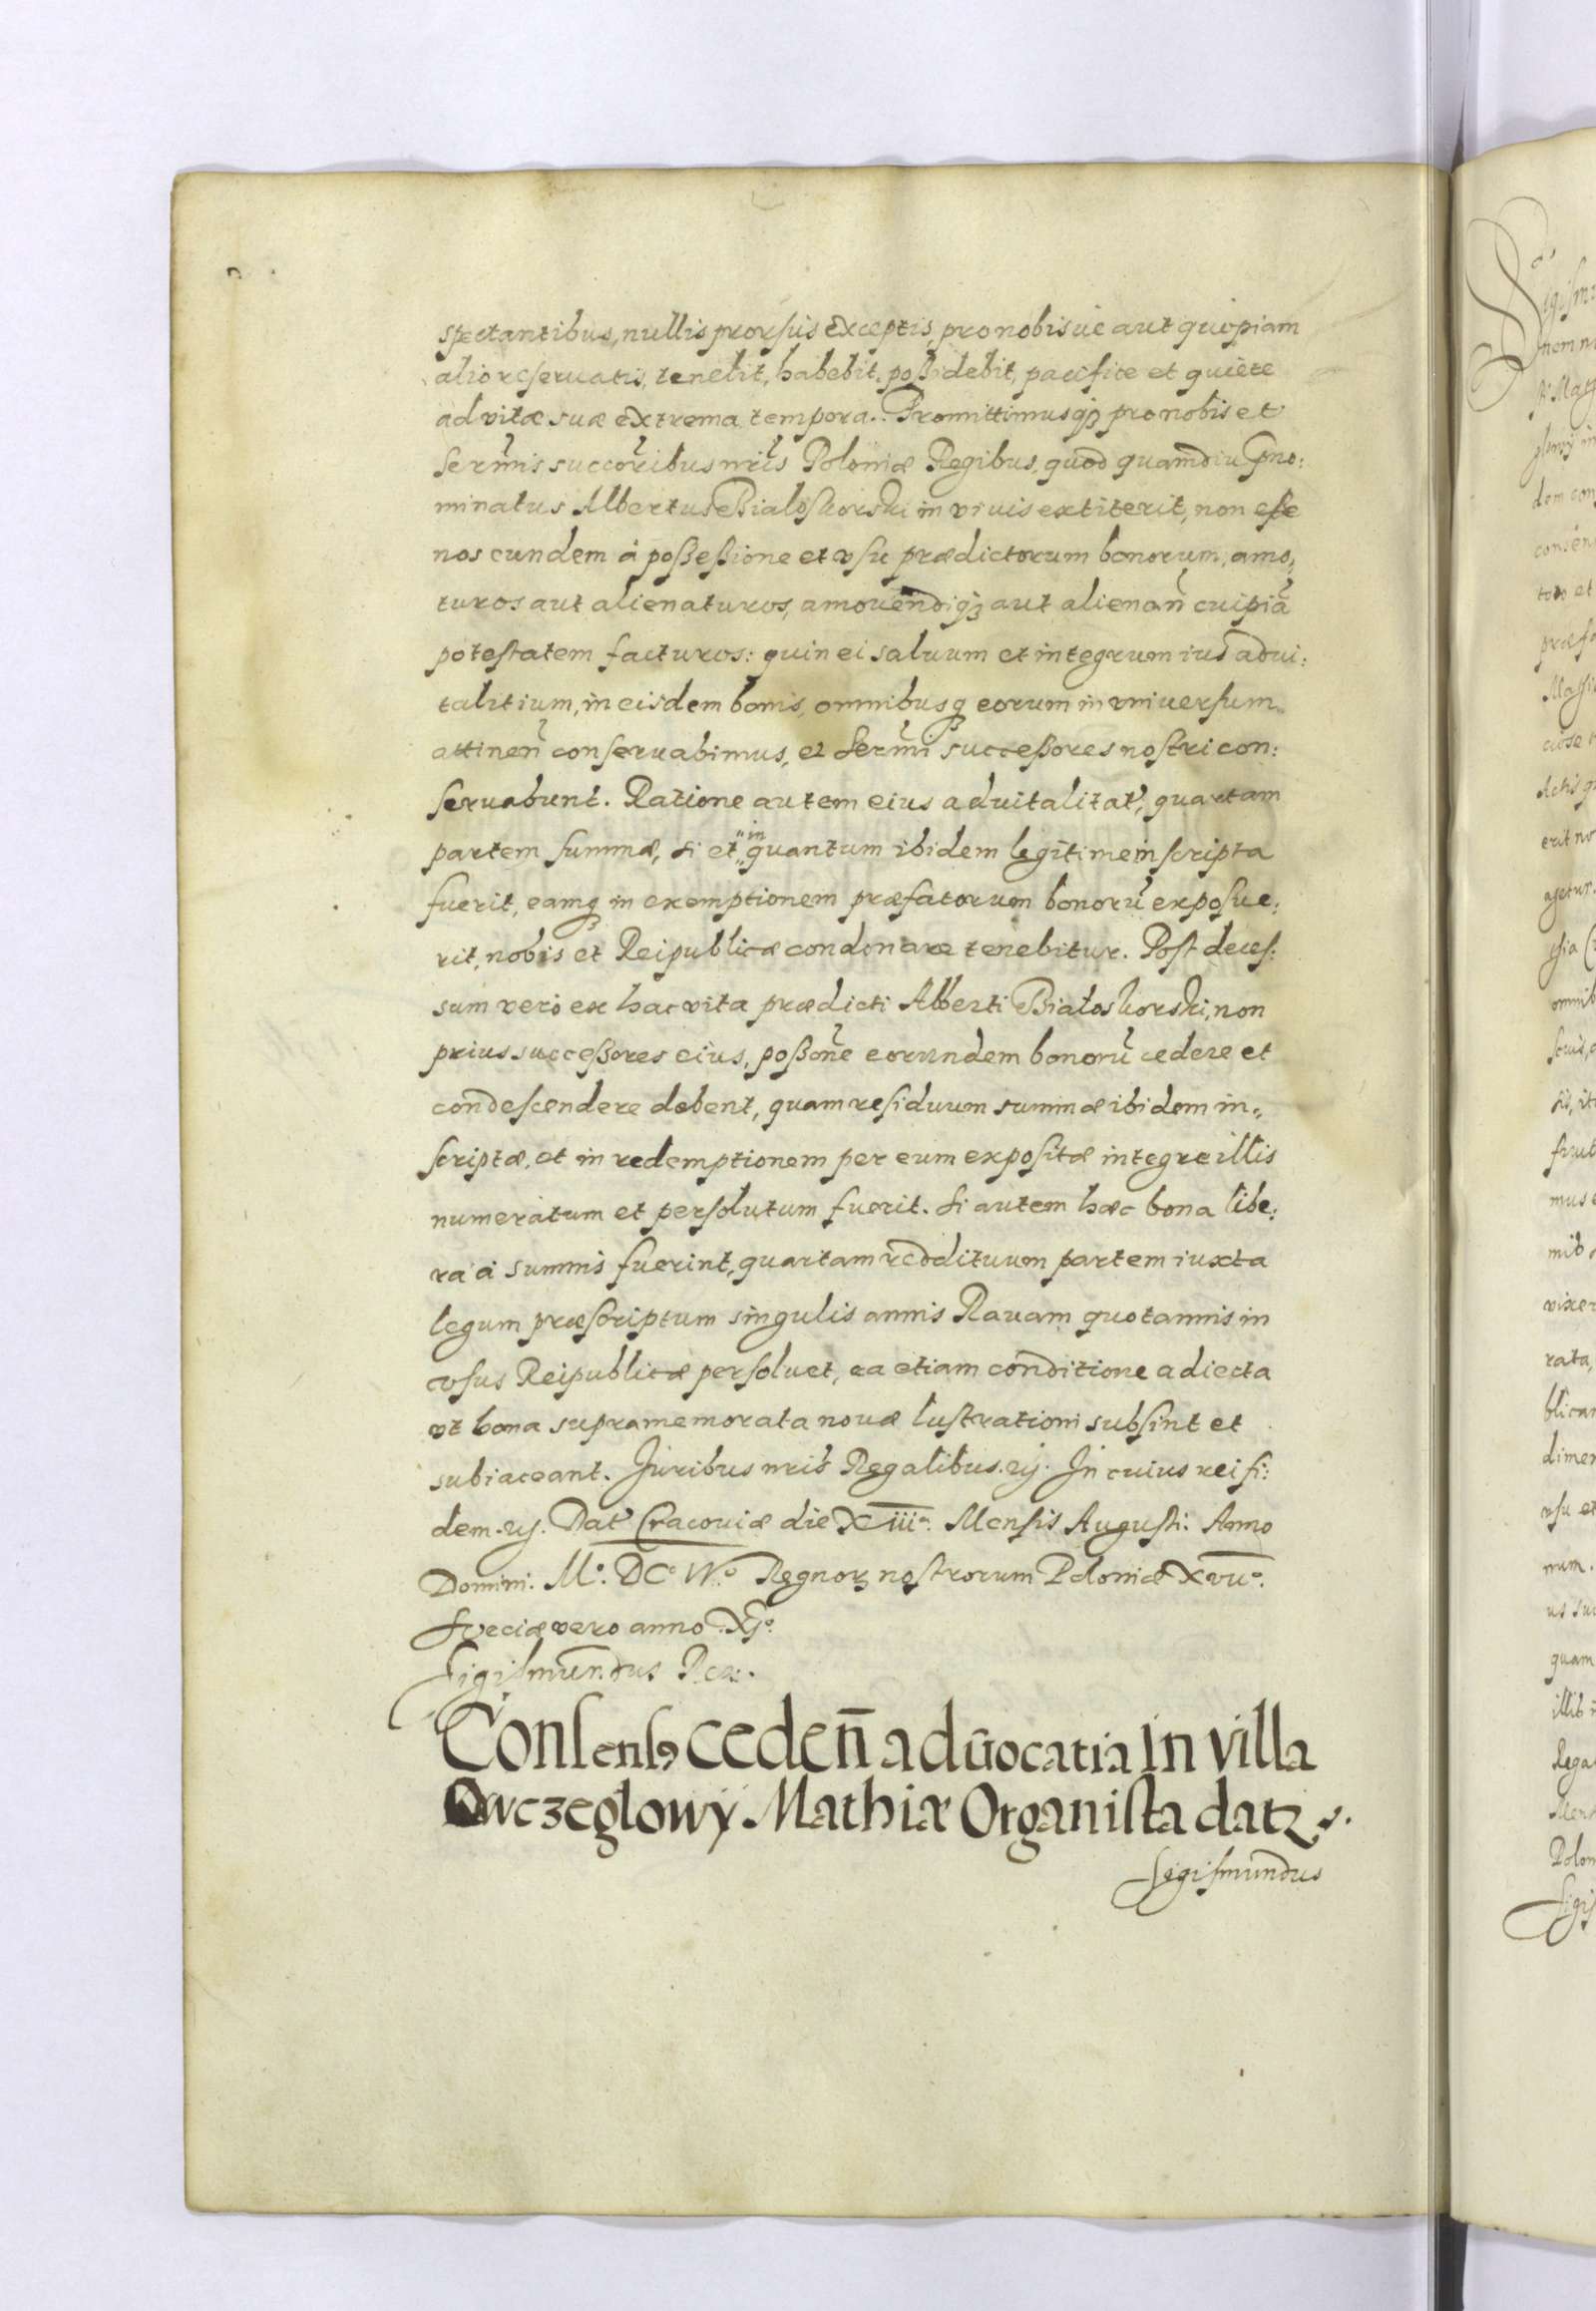 spectantibus, nullis prorsus exceptis, pro nobisue aut quopiam
alio reseruatis, tenebit, habebit, possidebit, pacifice et quiete
ad vitæ suæ extrema tempora. Promittimusq3 pro nobis et
Sermis succoribus nris Poloniæ Regibus, quod quamdiu pno:
minatus Albertus Bialoskorski in viuis extiterit, non esse
nos eundem à possessione et vsu prædictorum bonorum, amo:
turos aut alienaturos, amouendiq3 aut alienan cuipiã
potestatem facturos: quin ei saluum et integrum ius adui:
talitium, in eisdem bonis, omnibusq3 eorum in vniuersum
attinen conseruabimus, et Sermi successores nostri con:
seruabunt. Ratione autem eius aduitalitat, quartam
partem summæ, si et in quantum ibidem legitime inscripta
fuerit, eamq3 in exemptionem præfatorum bonorũ exposue:
rit, nobis et Reipublicæ condonare tenebitur. Post deces:
sum vero ex hac vita prædicti Alberti Bialoskorski, non
prius successores eius, possone eorundem bonorũ cedere et
condescendere debent, quam residuum summæ ibidem in:
scriptæ, et in redemptionem per eum expositæ integre illis
numeratum et persolutum fuerit. Si autem hæc bona libe:
ra à summis fuerint, quartam reddituum partem iuxta
legum præscriptum singulis annis Rauam quotannis in
vsus Reipublicæ persoluet, ea etiam conditione adiecta
vt bona supramemorata nouæ lustrationi subsint et
subiaceant. Juribus nris Regalibus. rj. In cuius rei fi:
dem. rj. Dat Cracouiæ die XIII. Mensis Augusti. Anno
Domini. Mo. DCo IVo Regnorz nostrorum Poloniæ XVII.
Sveciæ vero anno XIo.
Sigismundus Rex.
Consens9 ceden̄ aduocatia in villa
Owczeglowy Mathiæ Organista dat2 s.
Sigismundus